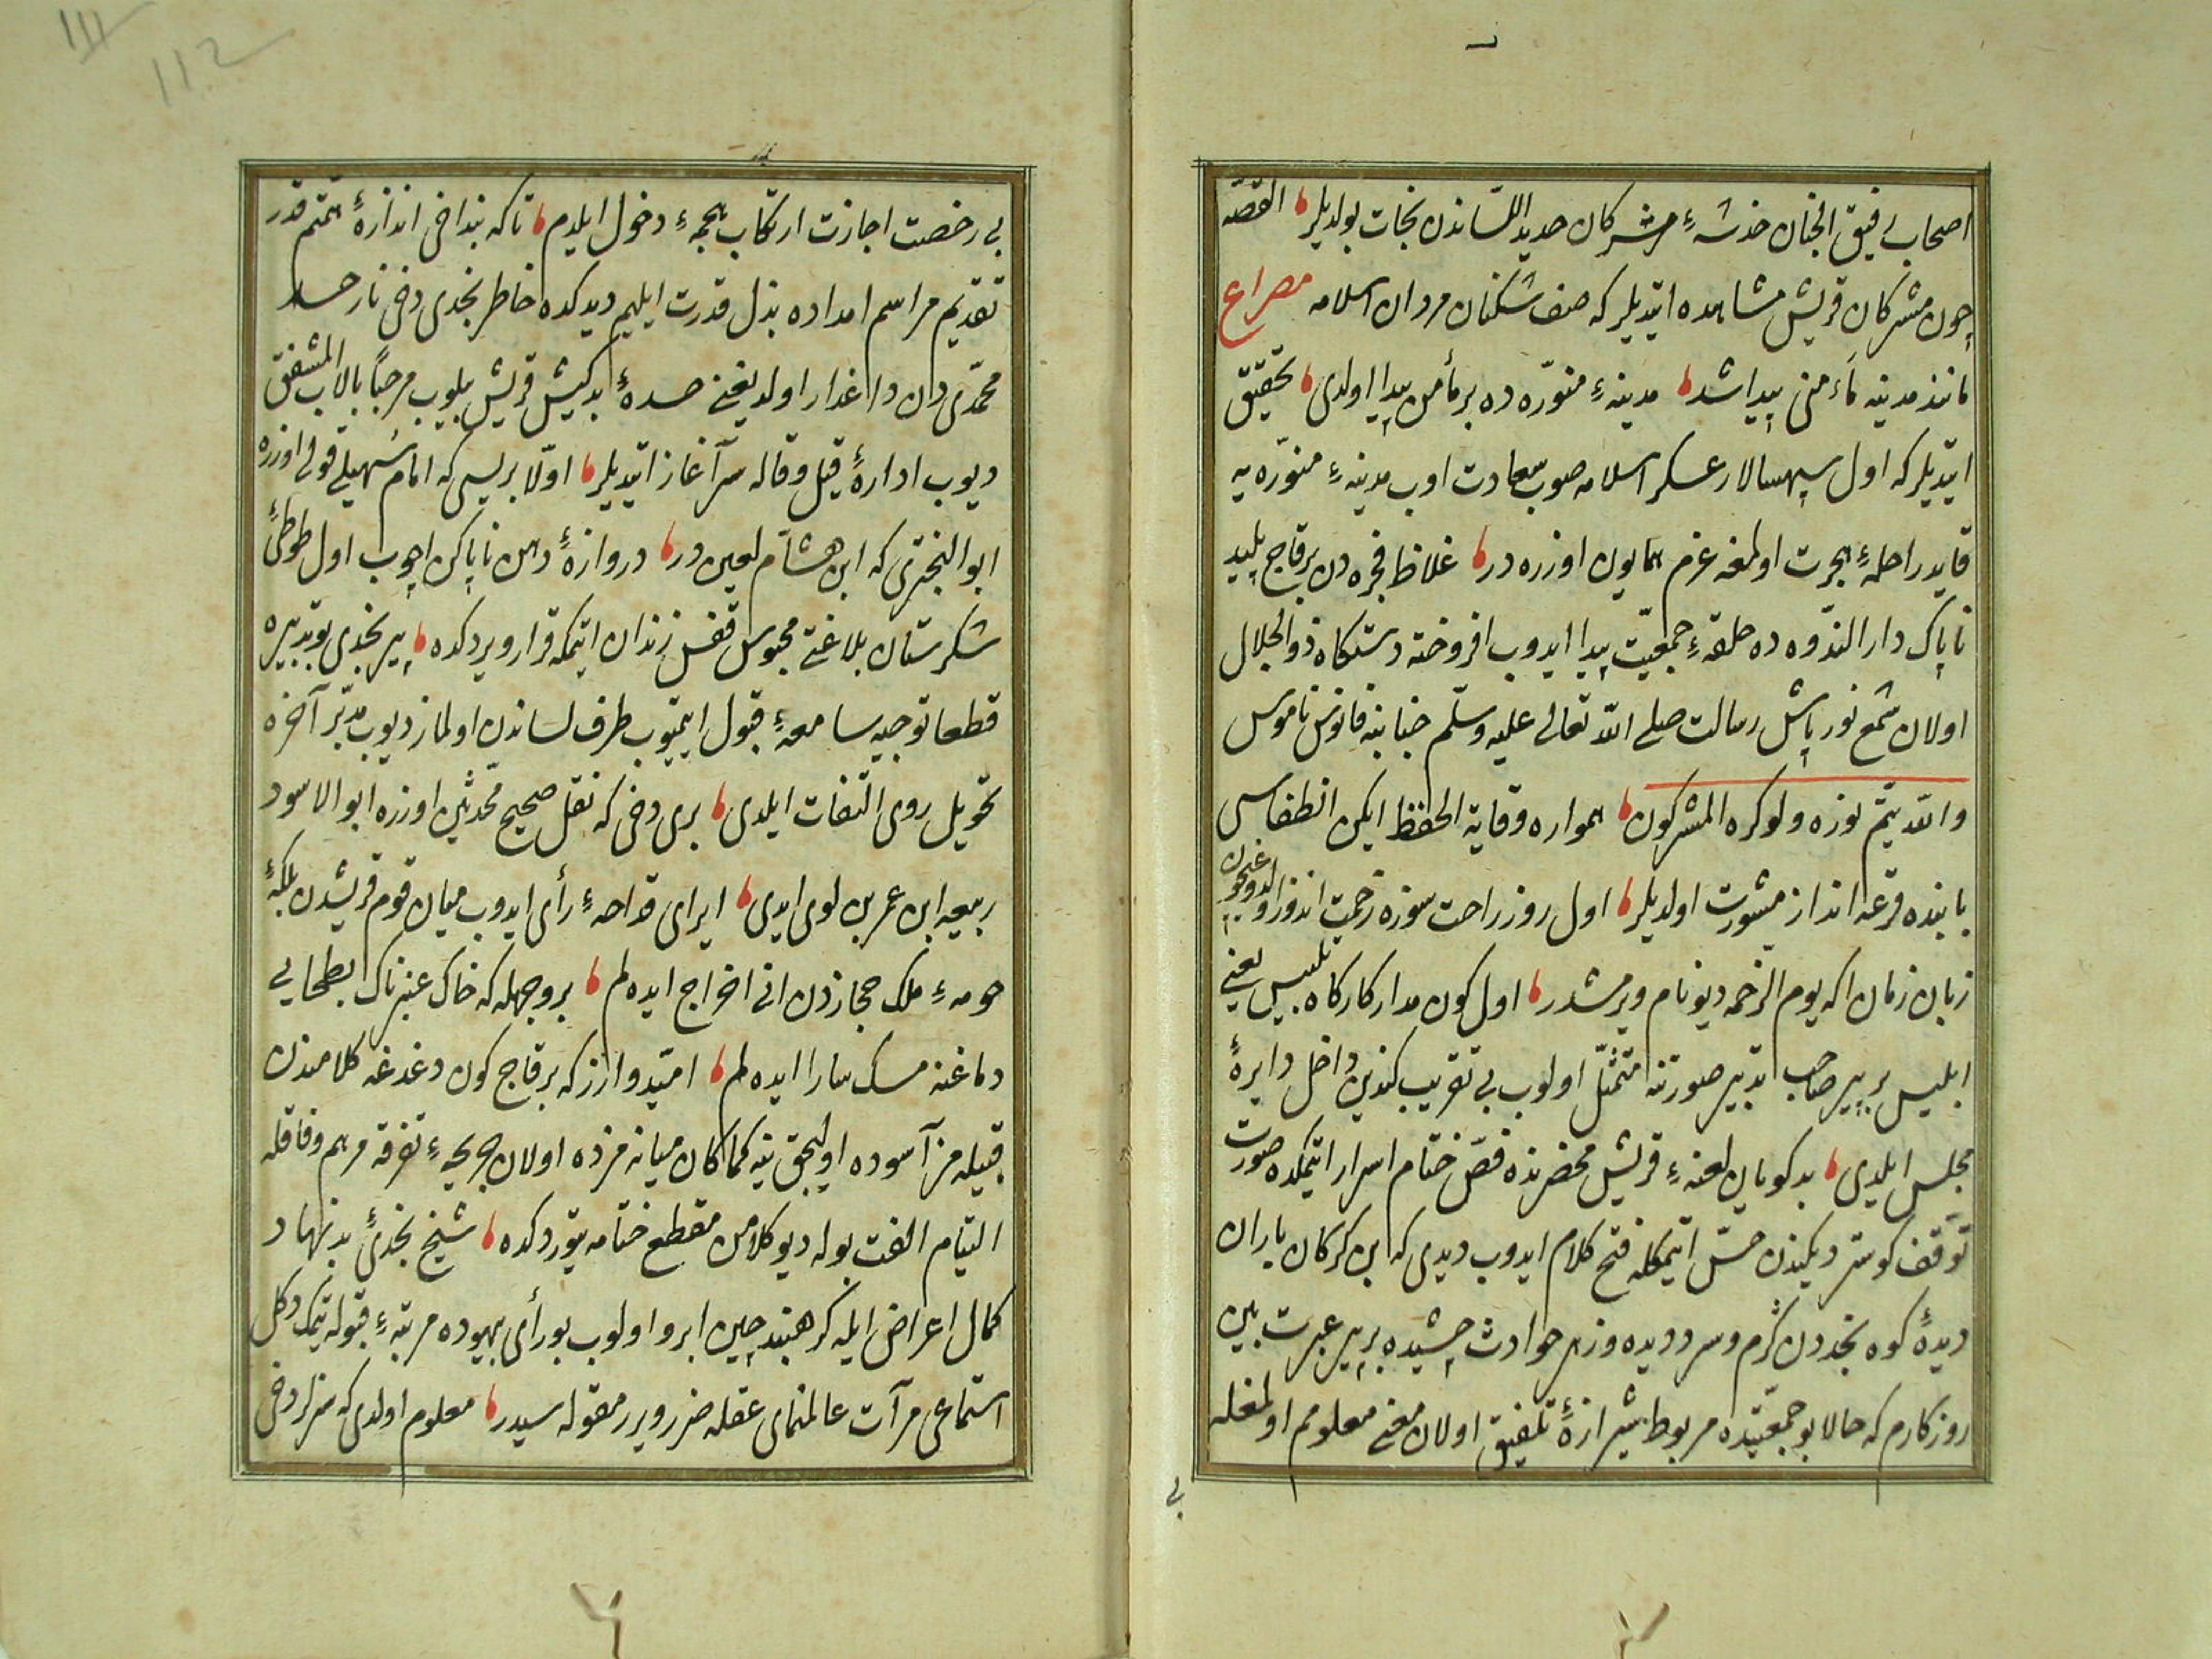 اصحاب رفيق الجنان خدشهٔ مشركان حديد اللساندن نجات بولديلر القصه
چون مشركان قريش مشاهده ايتديلر كه صف شكنان مردان اسلامه مصراع
مانند مدينه مأمنى پيدا شد مدينهٔ منوّره ده بر مأمن پيدا اولدى تحقيق
ايتديلر كه اول سپهسالار عسكر اسلامه صوب سعادت اوب مدينهٔ منوّره يه
قايد راحلهٔ هجرت اولمغه عزم همايون اوزره در غلاظ فجره دن برقاج پليد
ناپاك دار الندوه ده حلقهٔ جمعيّت پيدا ايدوب افروخته دستكاه ذو الجلال
اولان شمع نور پاش رسالت صلى الله تعالى عليه وسلّم جنابنه فانوس ناموس
والله يتمّ نوره ولو كره المشركون همواره وقاية الحفظ ايكن انطفاسى
بابنده قرعه انداز مشورت اولديلر اول روز راحت سوزه زحمت اندوز اولدوغيچون
زبان زمان اكه يوم الزحمه ديو نام ويرمشدر اول كون مدار كاركاه تلبيس يعنى
ابليس بر پير صاحب تدبير صورتنه متمثّل اولوب بى تقريب كندين داخل دايرهٔ
مجلس ايلدى بدكويان لعنهٔ قريش محضرنده فصّ ختام اسرار ايتمكده صورت
توقف كوستردكلرين حسّ ايتمكله فتح كلام ايدوب ديدى كه بن كركان باران
ديدهٔ كوه نجددن كرم وسرد ديده وزهر حوادث چشيده بر پير عبرت بين
روزكارم كه حالا بو جمعيّتده مربوط شيرازهٔ تلفيق اولان معنى معلومم اولمغله
بى
111
112
بى رخصت اجازت ارتكاب هجمهٔ دخول ايلدم تا كه بنداخى اندازهٔ همّتم قدر
تقديم مراسم امداده بذل قدرت ايليم ديدكده خاطر نجدى دخى نار حسد
محمّدى دن داغدار اولديغنى حسدهٔ بدكيش قريش بيلوب مرحبًا بالاب المشفق
ديوب ادارهٔ قيل وقاله سرآغاز ايتديلر اوّلا بريسى كه امام سهيلى قولى اوزره
ابو البخترى كه ابن هشام لعين در دروازهٔ دهن ناپاكن اچوب اول طوطئ
شكرستان بلاغتى محبوس قفس زندان ايتمكه قرار ويردكده پير نجدى بو تدبيره
قطعا توجيه سامعهٔ قبول ايتميوب طرف لساندن اولماز ديوب مدبّر آخره
تحويل روى التفات ايلدى برى دخى كه نقل صحيح محدّثين اوزره ابو الاسود
ربيعه ابن عمر بن لوى ايدى ايراى قداحهٔ رأى ايدوب ميان قوم قريشدن بلكهٔ
حومهٔ ملك حجازدن انى اخراج ايده لم بر وجهله كه خاك عنبرناك ابطحايى
دماغنه مسك سارا ايده لم اميّد وارز كه برقاج كون دغدغه كلامندن
قبيله مز آسوده اوليجق ينه كما كان ميانه مزده اولان جريحهٔ تفرقه مرهم وفاقله
التيام الفت بوله ديو كلامن مقطع ختامه يتوردكده شيخ نجدئ بد نهاد
كمال اعراض ايله كرهبند چين ابرو اولوب بو رأى بيهوده مرتبهٔ قبوله يتمك دكل
استماعى مرآت عالمنماى عقله ضرر ويرر مقوله سيدر معلوم اولدى كه سزلر دخى